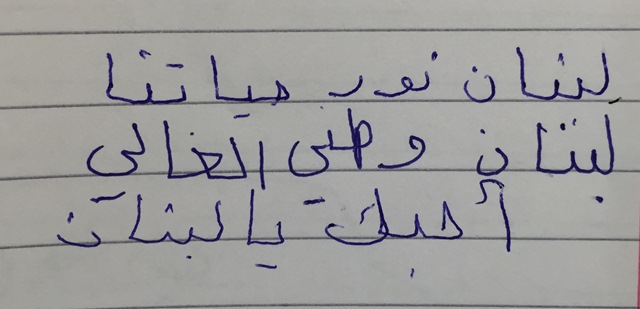 لبنان نور حياتنا
لبنان وطني الغالي
أحبك يا لبنان